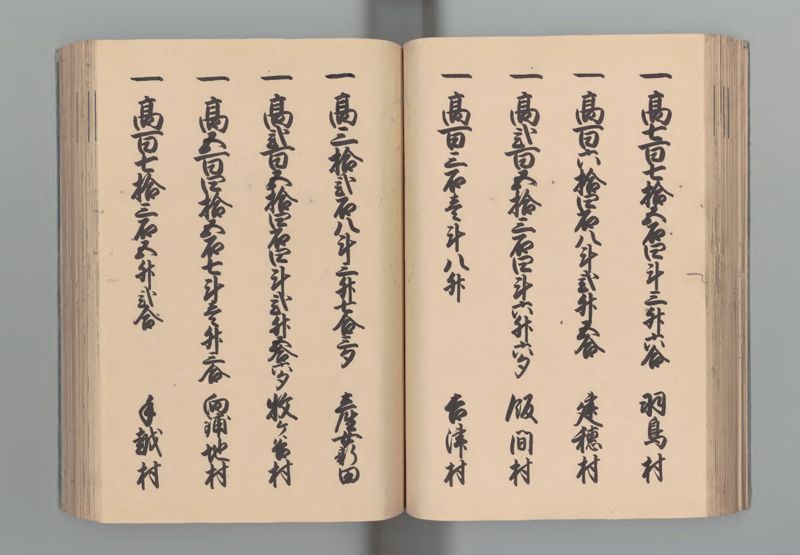 一高七百七拾五石四斗三升六合 羽鳥村
一高百六拾四石八斗弐升五合 建穂村
一高弐百五拾三石四斗六升六夕 飯間村
一高百三石壱斗八升 吉津村
一高三拾弐石八斗三升七合三夕 産女新田
一高弐百五拾四石四斗弐升五合六夕 牧ヶ谷村
一高五百四拾五石七斗壱升三合 向 地村
一高百七拾三石五升弐合 手越村